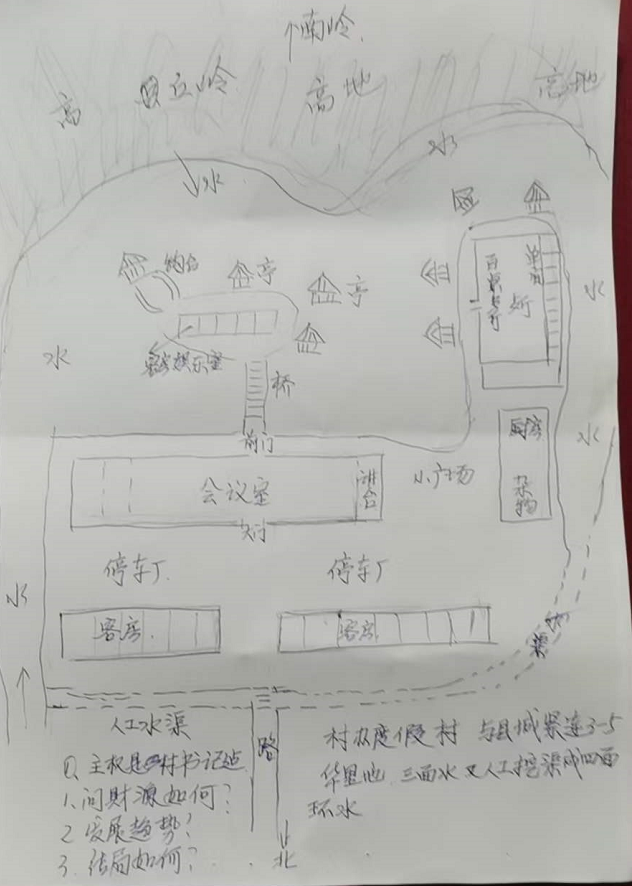 南岭
高
丘岭
高地
高地
水
水
钓台
亭
亭
水
客房娱乐室
桥
单间
水
水
前门
厨房
杂物
会议室
讲台
小广场
大门
停车厂
停车厂
水
客房
客房
渠
人工水渠
路
北
村办度假村 与县城紧连3-5
华里地 三面水又人工挖渠成四面
环水
主权是村书记
1.问财源如何?
2 发展趋势?
3. 结局如何?